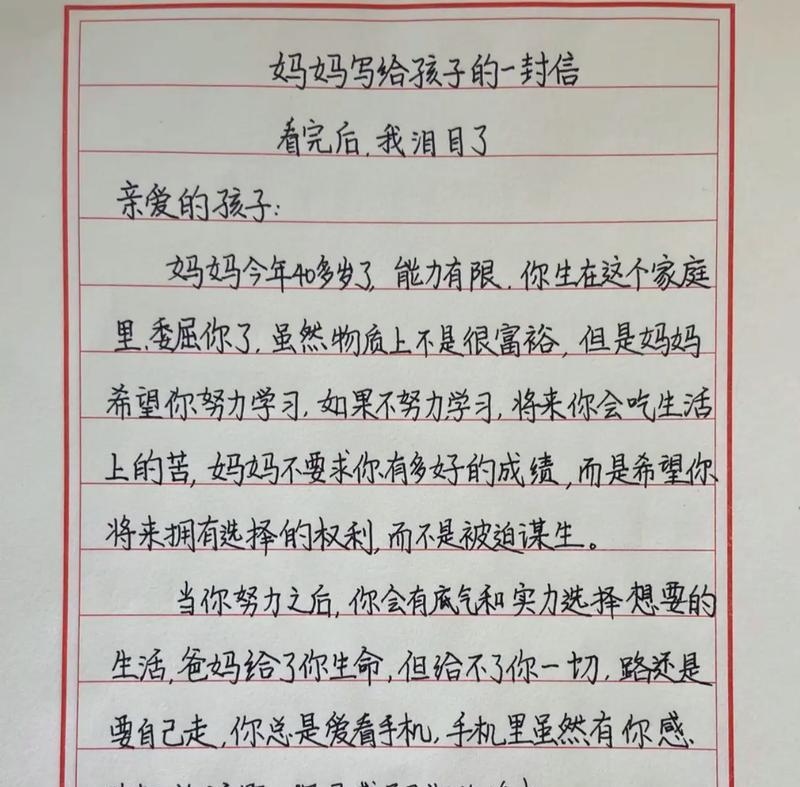 妈妈写给孩子的一封信
看完后,我泪目了
亲爱的孩子:
妈妈今年40多岁了,能力有限.你生在这个家庭
里,委屈你了,虽然物质上不是很富裕,但是妈妈
希望你努力学习,如果不努力学习,将来你会吃生活
上的苦,妈妈不要求你有多好的成绩,而是希望你
将来拥有选择的权利,而不是被迫谋生。
当你努力之后,你会有底气和实力选择想要的
生活,爸妈给了你生命,但给不了你一切,路还是
要自己走,你总是爱看手机,手机里虽然有你感